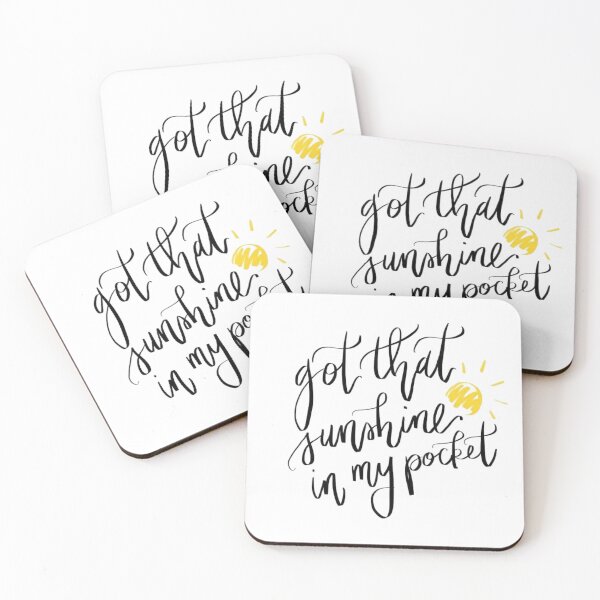 got that
shine
ocket
got that
sunshine
in my pocket
got that
sunshine
in my poc
got that
sunshine
in my pocket